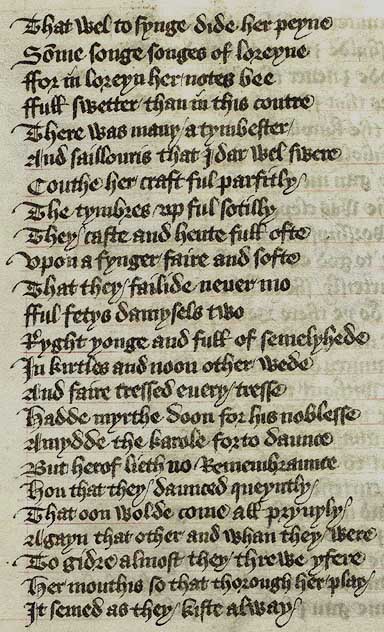 That wel to synge dide her peyne
Som̅e songe songes of loreyne
ffor in loreyn her notes bee
ffull swetter than in this contre
There was many a tymbester
And saillouris that I dar wel swere
Couthe her craft ful parfitly
The tymbres vp ful sotilly
They caste and hente full ofte
vpon a fynger faire and softe
That they failide neuer mo
fful fetys damysels two
Ryght yonge and full of semelyhede
In kirtles and noon other wede
And faire tressed euery tresse
Hadde myrthe doon for his noblesse
Amydde the karole forto daunce
But herof lieth no Remembraunce
Hou that they daunced queyntly
That oon wolde come all pryuyly
Agayn that other and whan they were
To gidre almost they threwe yfere
Her mouthis so that thorough her play
It semed as they kiste alway